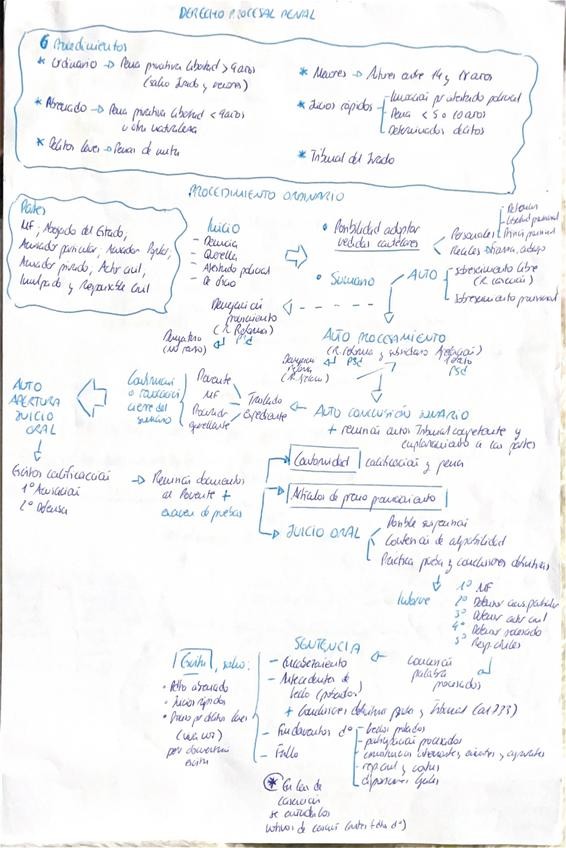 DERECHO PROCESAL PENAL
6 Procedimientos
* Ordinario → Pena privativa libertad > 9 años
(salvo Jurado y menores)
* Abreviado → Pena privativa libertad < 9 años
u otra naturaleza
* Delitos leves → Penas de multa
* Menores → Autores entre 14 y 18 años
* Juicios rápidos
Iniciación por atestado policial
Pena < 5 o 10 años
Determinados delitos
* Tribunal del Jurado
PROCEDIMIENTO ORDINARIO
Partes
MF, Abogado del Estado,
Acusador particular, Acusador Popular,
Acusador privado, Actor civil,
Inculpado y Responsable civil
Inicio
- Denuncia
- Querella
- Atestado policial
- De oficio
• Posibilidad adoptar
medidas cautelares
Personales
- Detención
- Libertad provisional
- Prisión provisional
Reales → fianza, embargo
• Sumario
AUTO
- sobreseimiento libre
(R. casación)
- sobreseimiento provisional
Denegación
procesamiento
(R. Reforma)
AUTO PROCESAMIENTO
(R. reforma y subsidiario Apelación)
AUTO CONCLUSIÓN SUMARIO
+ remisión autos Tribunal competente y
emplazamiento a las partes
Traslado
expediente
Ponente
MF
Procurador
querellante
Confirmación
o revocación
cierre del
sumario
AUTO
APERTURA
JUICIO
ORAL
Escritos calificación
1º Acusación
2º Defensa
→ Remisión documentos
al Ponente +
examen de pruebas
Conformidad calificación y pena
Artículos de previo pronunciamiento
JUICIO ORAL
Posible suspensión
Práctica prueba y conclusiones definitivas
Informe
1º MF
2º Defensor acus. particular
3º Defensor actor civil
4º Defensor procesado
5º Resp. civiles
Concesión
palabra
procesados
SENTENCIA
- Encabezamiento
- Antecedentes de
hecho (probados)
+ Conclusiones definitivas partes y tribunal (art 733)
- Fundamentos dº
- hechos probados
- participación procesados
- circunstancias atenuantes, eximentes y agravantes
- resp civil y costas
- disposiciones legales
- Fallo
Escrita, salvo:
• Petro abreviado
• Juicios rápidos
* En caso de
casación